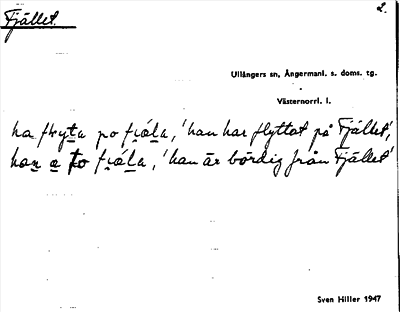 Fjället.
2.
Ullångers sn, Ångermanl. s. doms. tg.
Västernorrl. l.
ha flryta po fjäla, 'han har flyttat på Fjället',
han a fro fjäla, 'han är bördig från Fjället'
Sven Hiller 1947